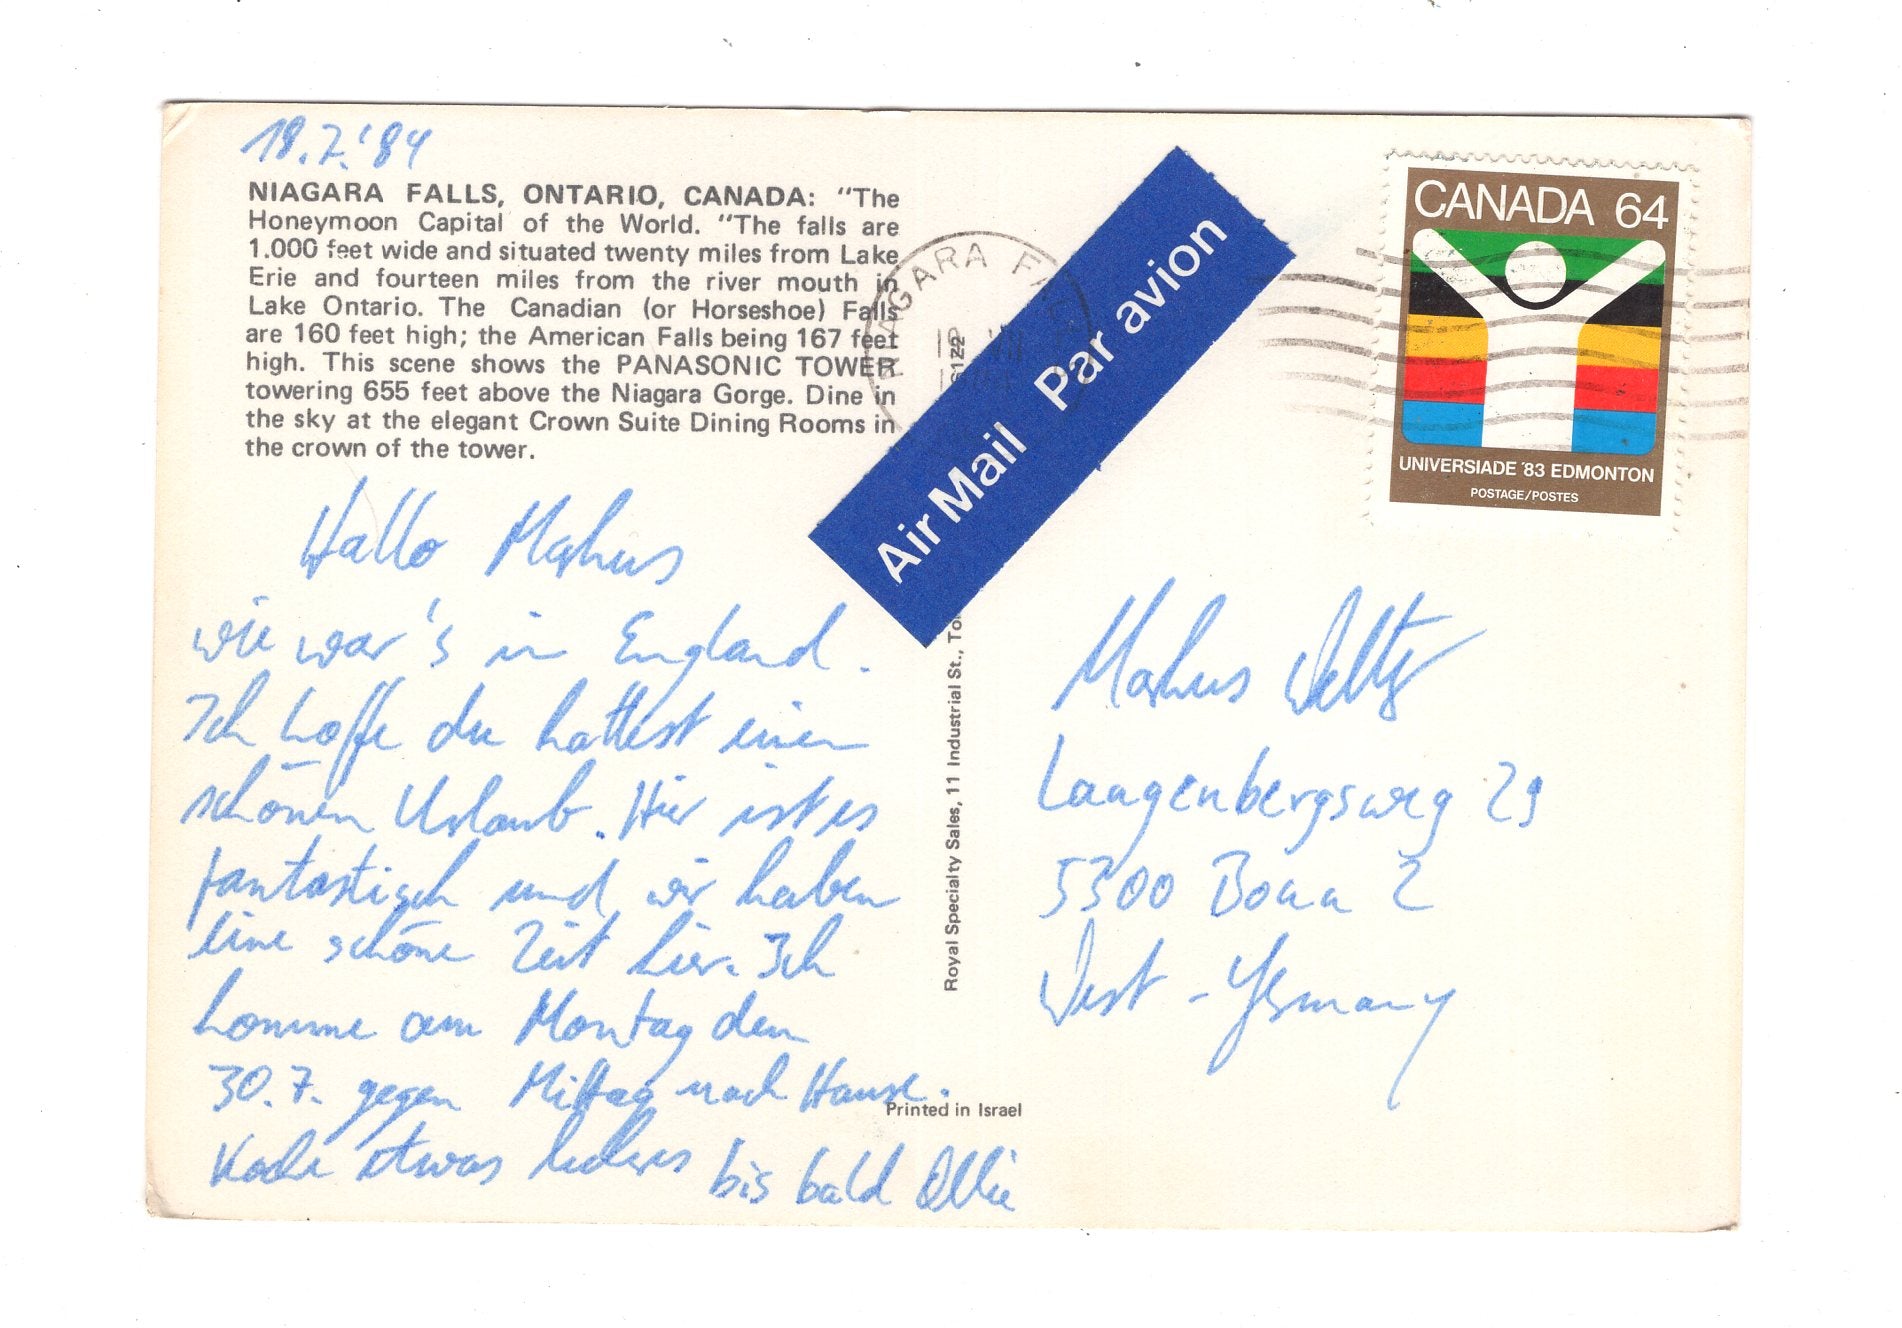 18.7.'84
NIAGARA FALLS, ONTARIO, CANADA: "The
Honeymoon Capital of the World. "The falls are
1.000 feet wide and situated twenty miles from Lake
Erie and fourteen miles from the river mouth in
Lake Ontario. The Canadian (or Horseshoe) Falls
are 160 feet high; the American Falls being 167 feet
high. This scene shows the PANASONIC TOWER
towering 655 feet above the Niagara Gorge. Dine in
the sky at the elegant Crown Suite Dining Rooms in
the crown of the tower.
Hallo Markus
wie war's in England.
Ich hoffe du hattest einen
schönen Urlaub. Hier ist es
fantastisch und wir haben
eine schöne Zeit hier. Ich
komme am Montag den
30.7. gegen Mittag nach Hause.
Koche etwas leckeres bis bald Ollie
Royal Specialty Sales, 11 Industrial St., To
Printed in Israel
AGARA F
Air Mail Par avion
CANADA 64
UNIVERSIADE '83 EDMONTON
POSTAGE/POSTES
Markus
Langenbergsweg 29
5300 Bonn 2
West-Germany